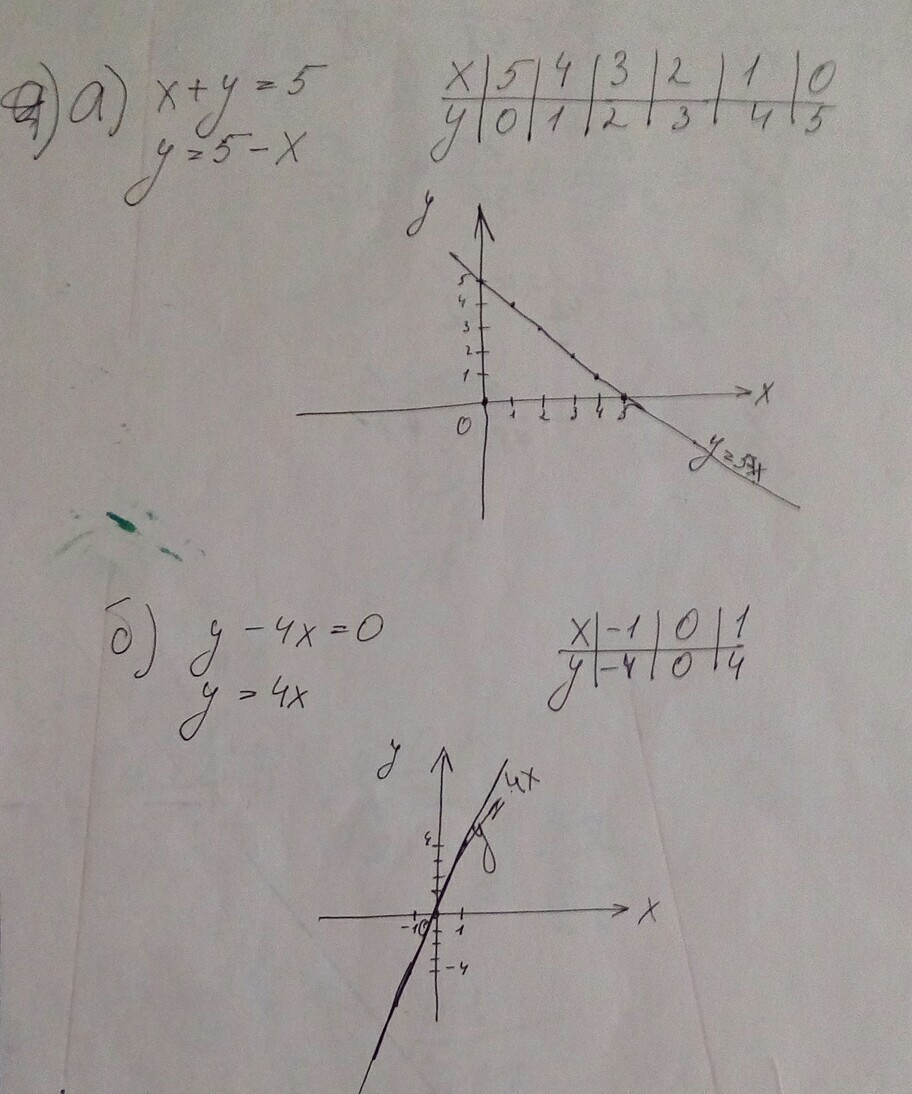 а) x + y = 5
y = 5 - x
x | 5 | 4 | 3 | 2 | 1 | 0
y | 0 | 1 | 2 | 3 | 4 | 5
y
5
4
3
2
1
0 1 2 3 4 5 x
б) y - 4x = 0
y = 4x
x | -1 | 0 | 1
y | -4 | 0 | 4
y
y = 4x
4
-1 0 1 x
-4